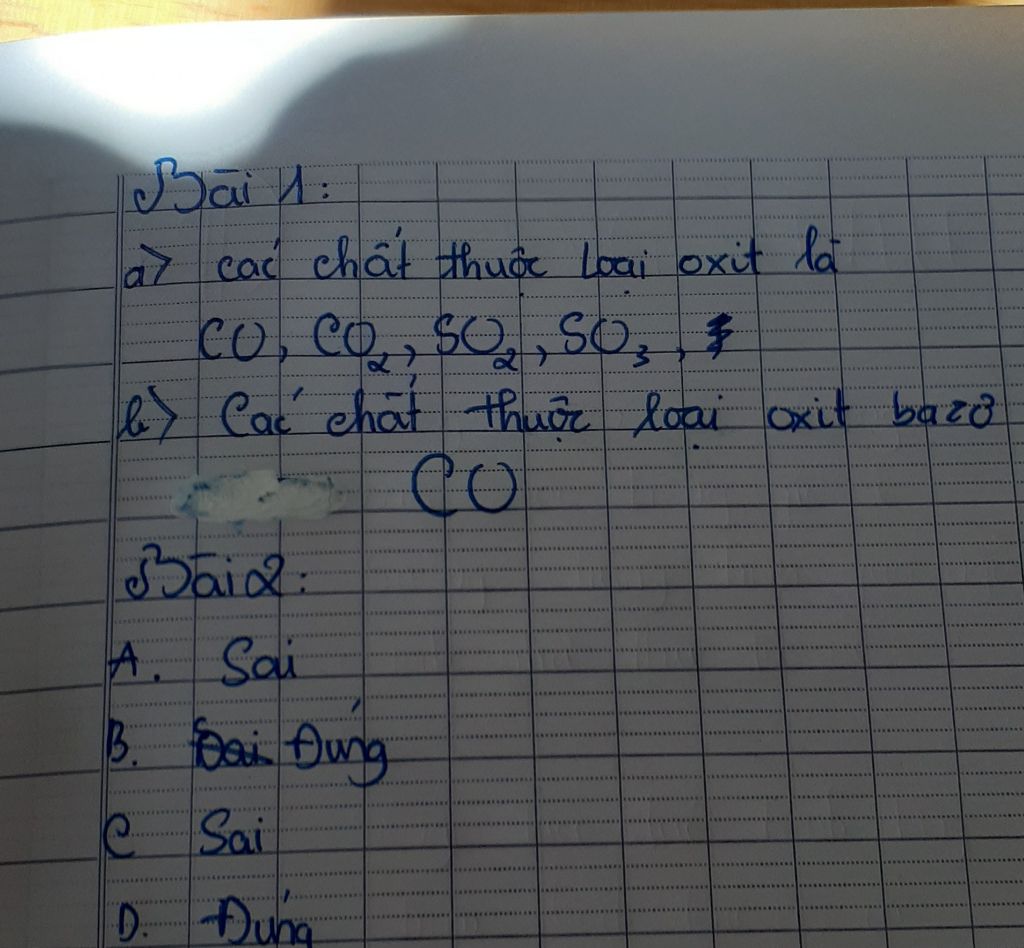 Bài 1:
a> các chất thuộc loại oxit là
CO, CO₂, SO₂, SO₃,
b> Các chất thuộc loại oxit bazơ
CO
Bài 2:
A. Sai
B. Đúng
C Sai
D. Đúng